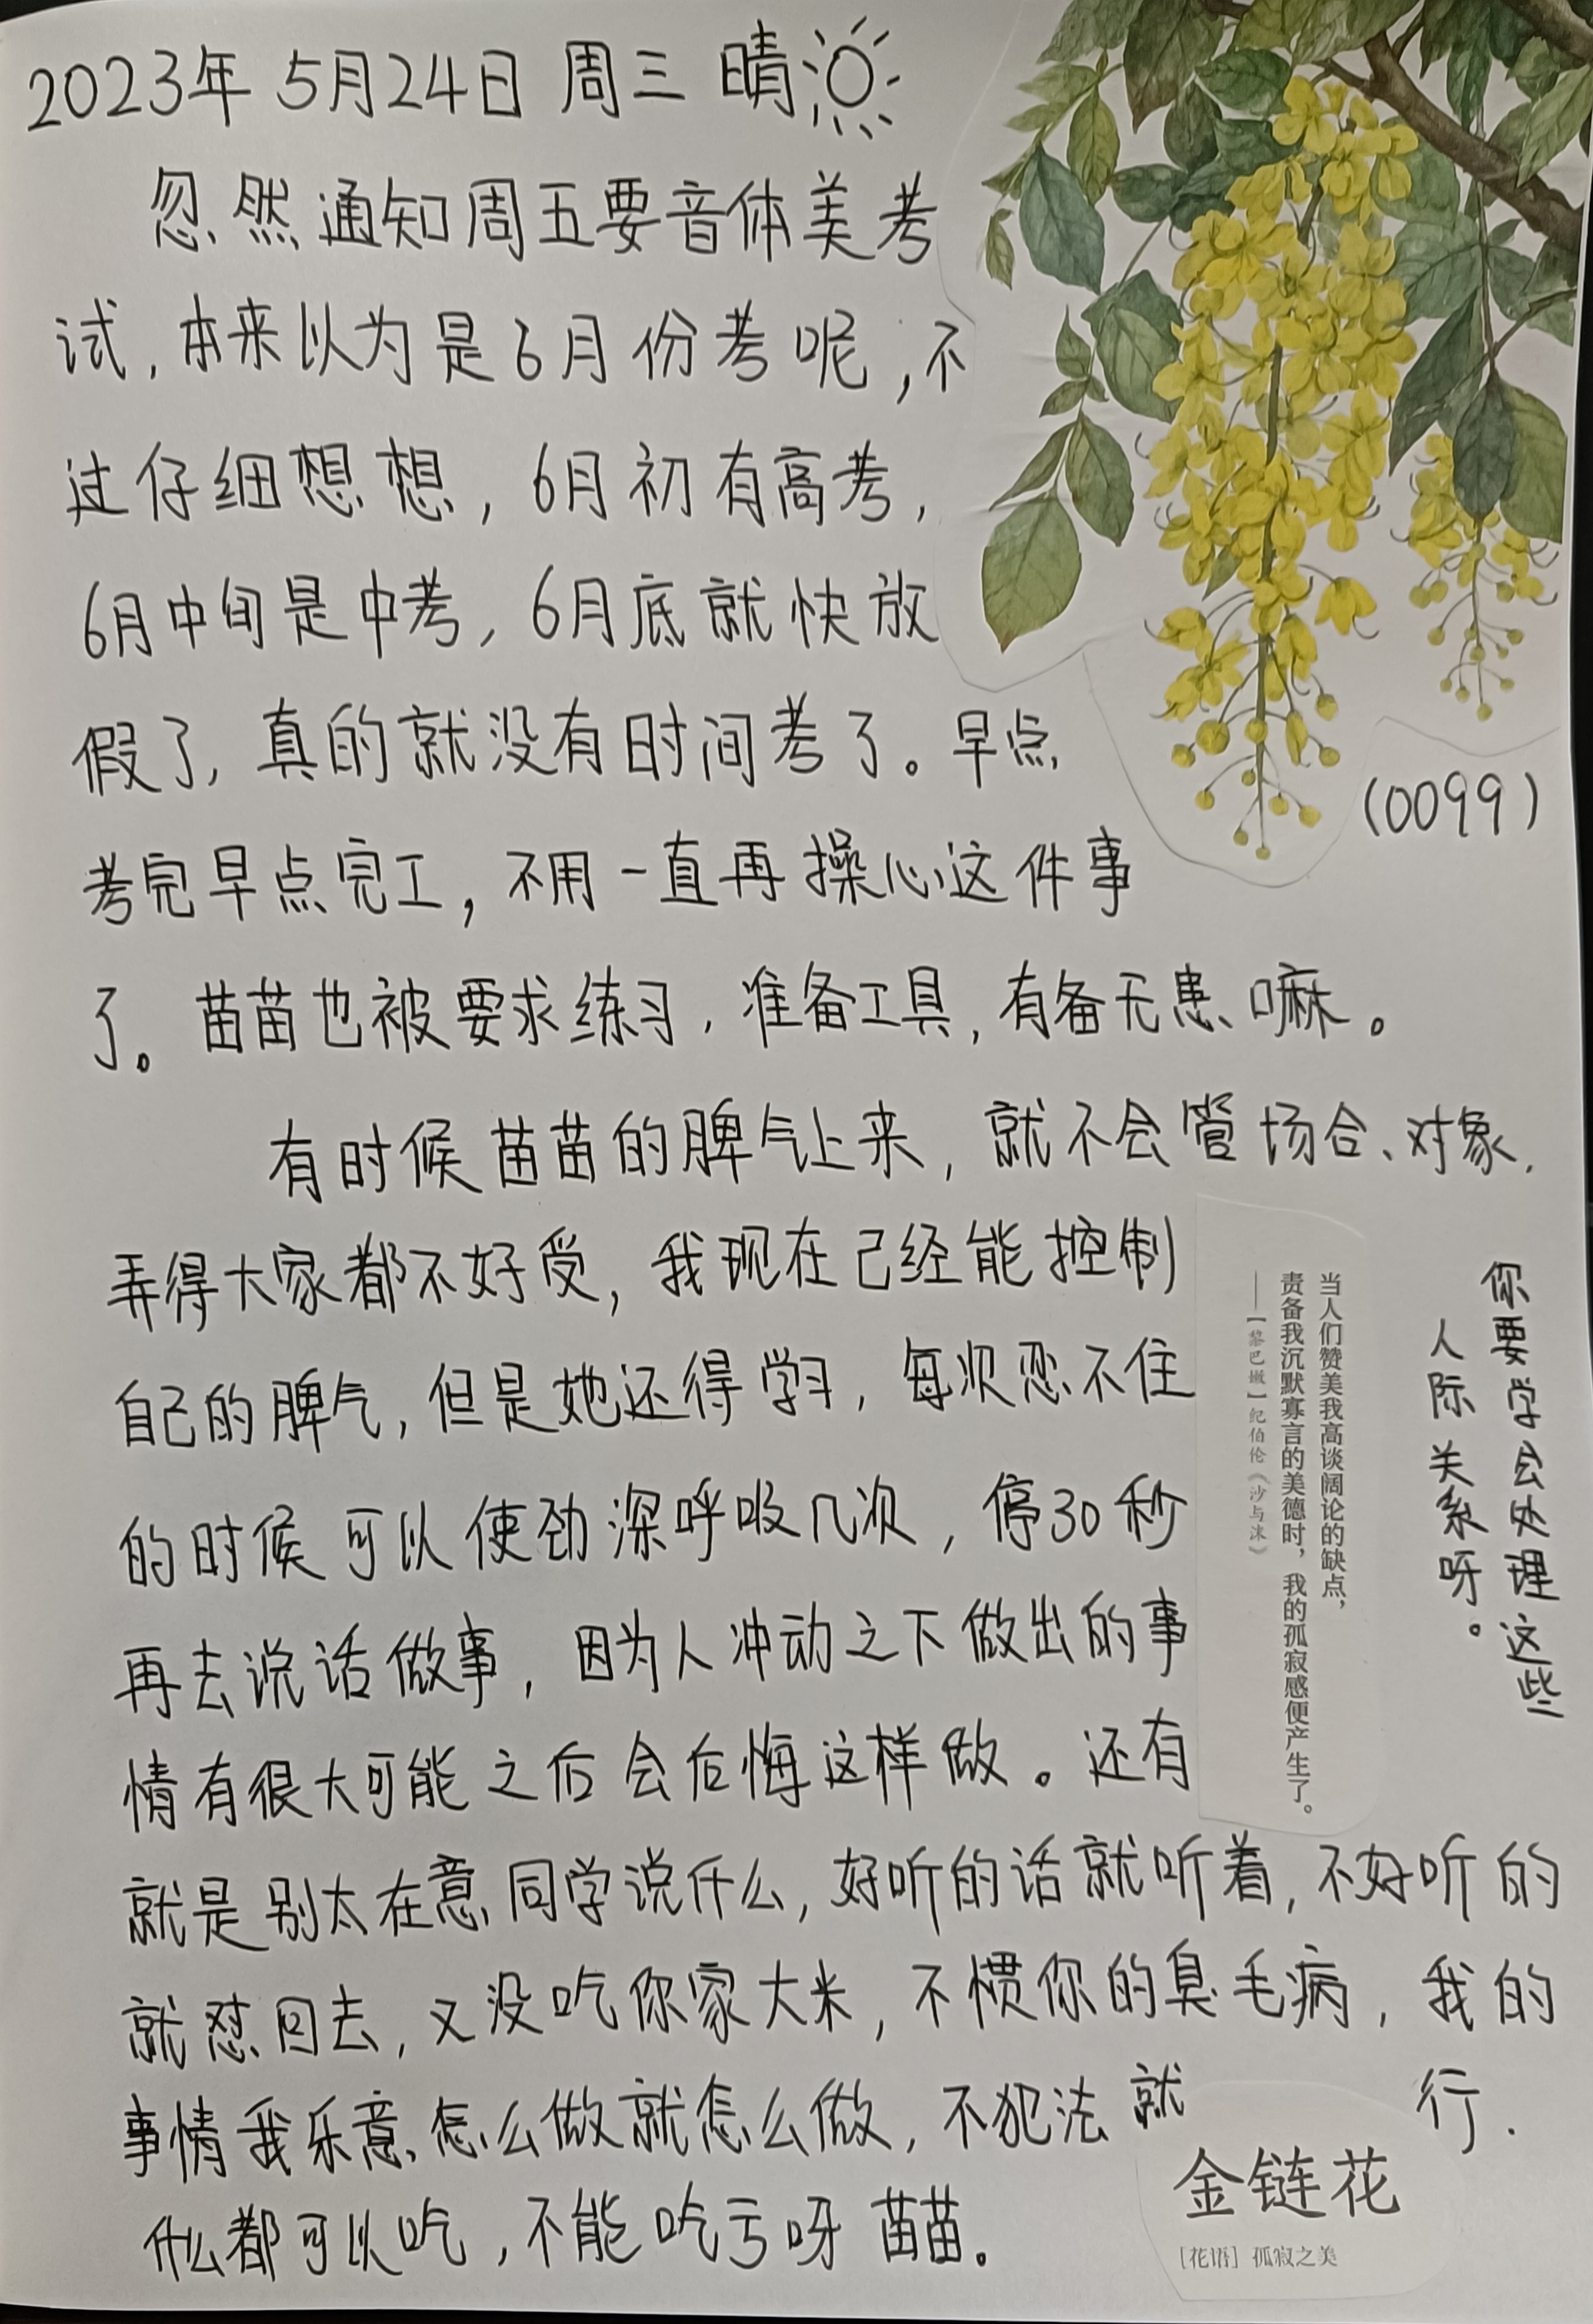 2023年 5月24日 周三 晴
忽然通知周五要音体美考
试，本来以为是6月份考呢，不
过仔细想想，6月初有高考，
6月中旬是中考，6月底就快放
假了，真的就没有时间考了。早点
(0099)
考完早点完工，不用一直再操心这件事
了。苗苗也被要求练习，准备工具，有备无患嘛。
有时候苗苗的脾气上来，就不会管场合、对象，
弄得大家都不好受，我现在已经能控制
自己的脾气，但是她还得学习，每次忍不住
的时候可以使劲深呼吸几次，停30秒
再去说话做事，因为人冲动之下做出的事
情有很大可能之后会后悔这样做。还有
就是别太在意同学说什么，好听的话就听着，不好听的
就怼回去，又没吃你家大米，不惯你的臭毛病，我的
事情我乐意怎么做就怎么做，不犯法就行．
什么都可以吃，不能吃亏呀苗苗。
你要学会处理这些
人际关系呀。
当人们赞美我高谈阔论的缺点，
责备我沉默寡言的美德时，我的孤寂感便产生了。
——【黎巴嫩】纪伯伦《沙与沫》
金链花
［花语］孤寂之美